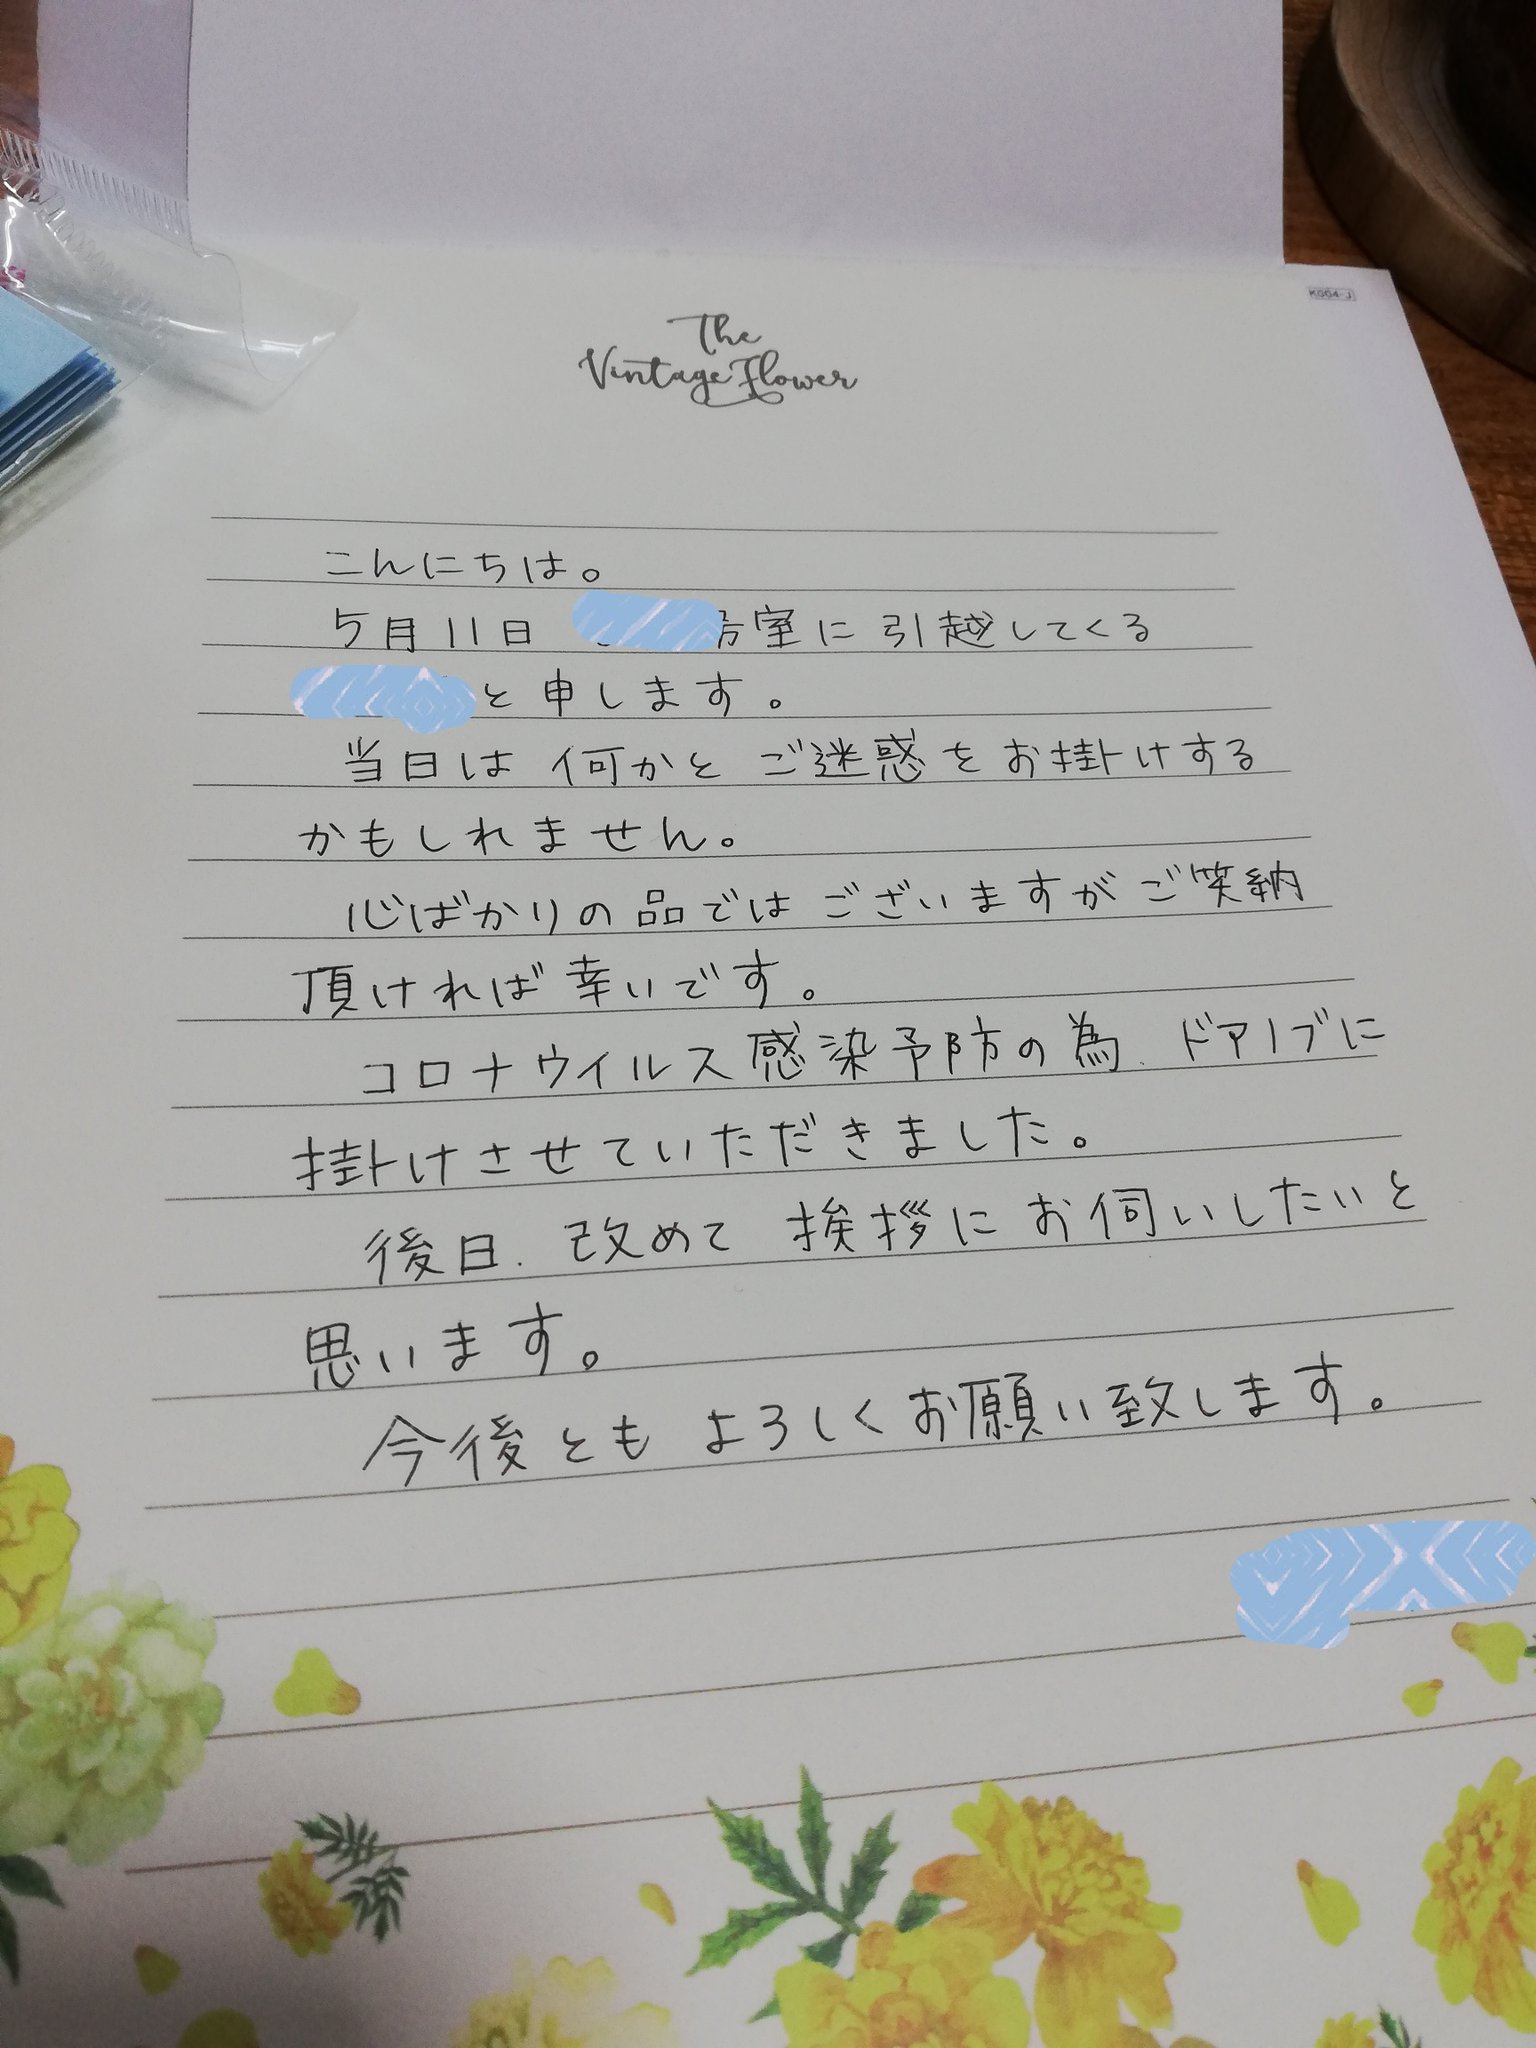 KG64-J
The
Vintage Flower
こんにちは。
5月11日 号室に引越してくる
と申します。
当日は何かとご迷惑をお掛けする
かもしれません。
心ばかりの品ではございますがご笑納
頂ければ幸いです。
コロナウイルス感染予防の為、ドアノブに
掛けさせていただきました。
後日、改めて挨拶にお伺いしたいと
思います。
今後ともよろしくお願い致します。